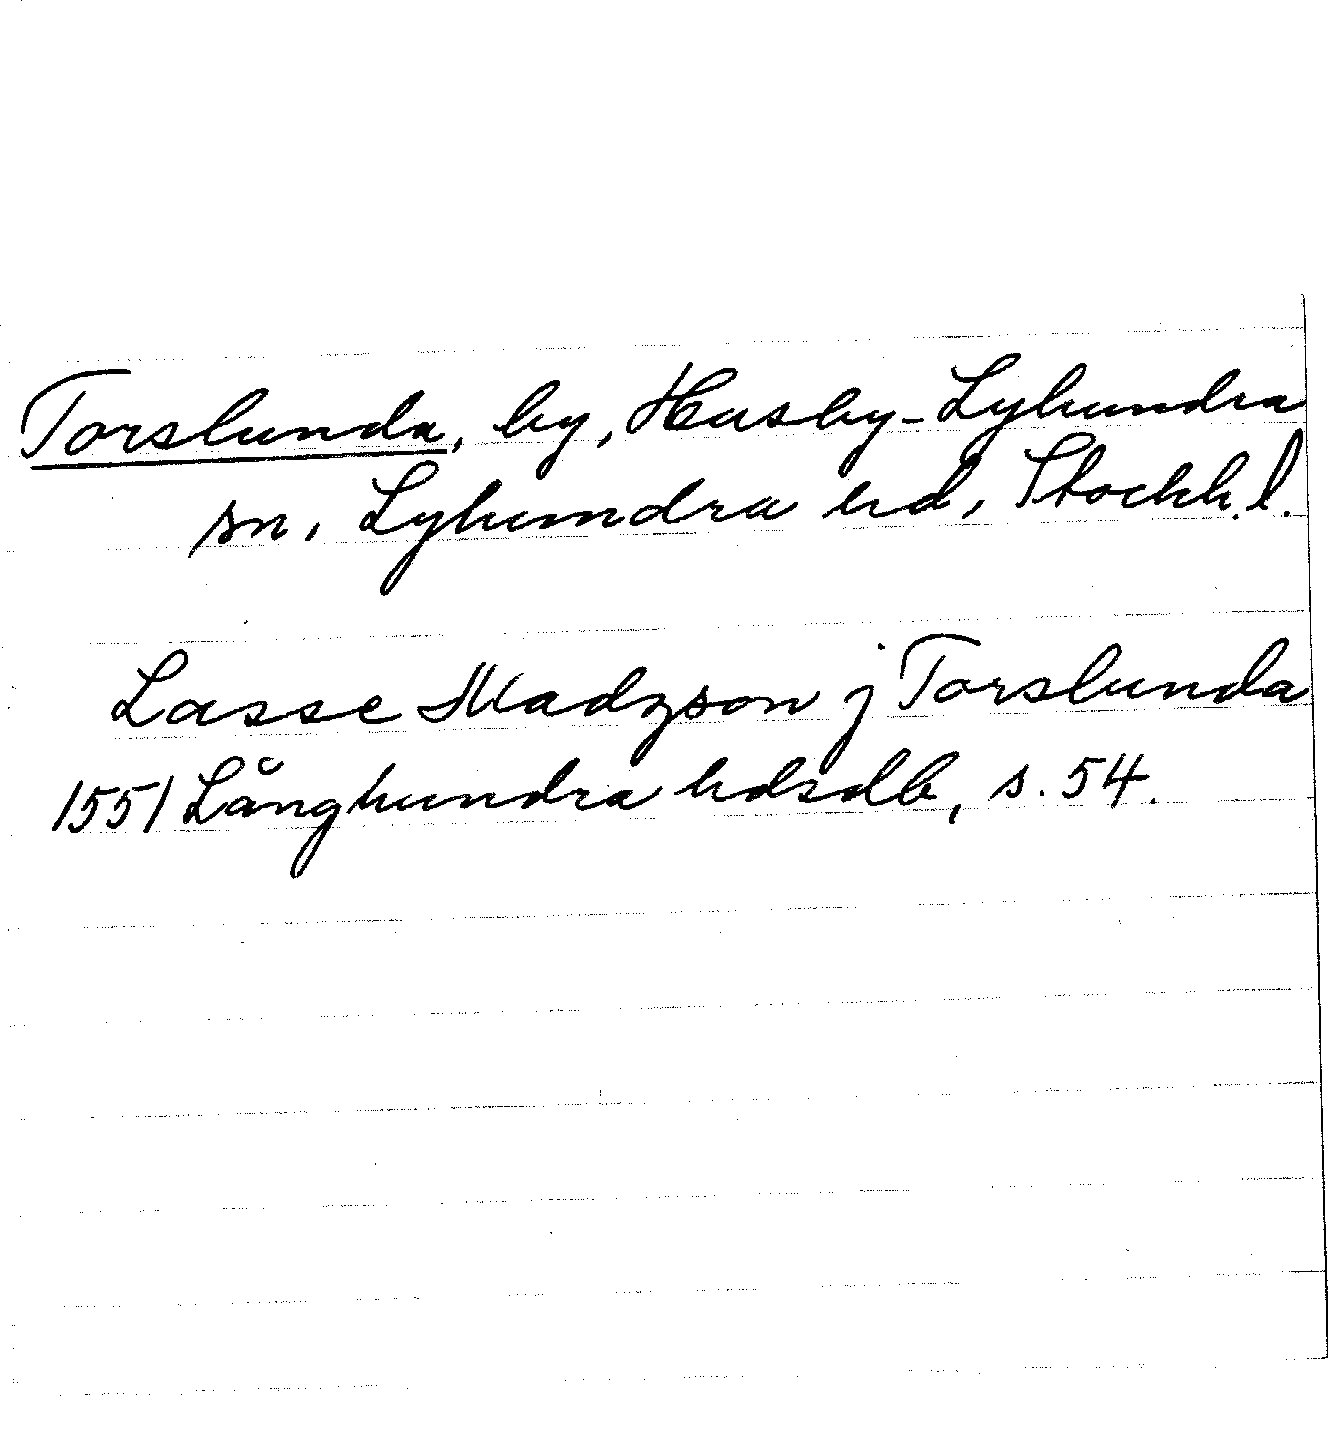 Torslunda, by, Husby-Lyhundra
sn, Lyhundra hd, Stockh. l.
Lasse Madzson j Torslunda
1551 Långhundra hdsdb, s. 54.